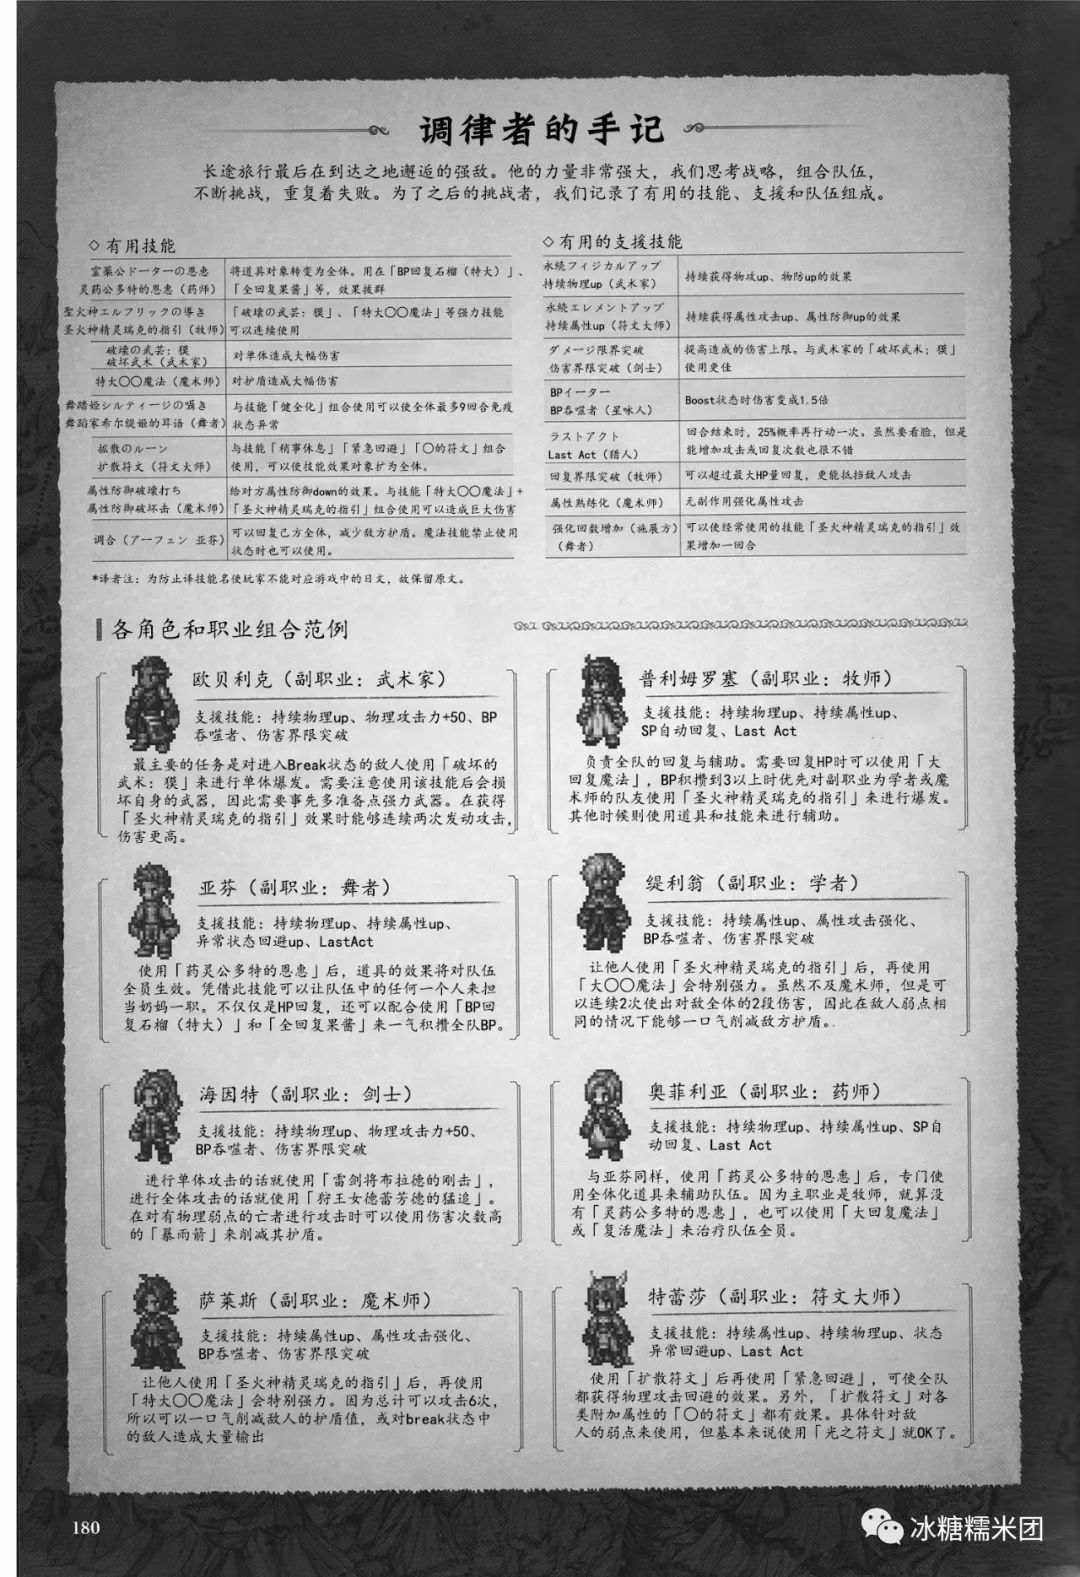 调律者的手记
长途旅行最后在到达之地邂逅的强敌。他的力量非常强大，我们思考战略，组合队伍，
不断挑战，重复着失败。为了之后的挑战者，我们记录了有用的技能、支援和队伍组成。
◇有用技能
霊薬公ドーターの恩恵
灵药公多特的恩惠（药师）
将道具对象转变为全体。用在「BP回复石榴（特大）」、
「全回复果酱」等，效果拔群
聖火神エルフリックの導き
圣火神精灵瑞克的指引（牧师）
「破壊の武芸：獏」、「特大〇〇魔法」等强力技能
可以连续使用
破壊の武芸：獏
破坏武术（武术家）
对单体造成大幅伤害
特大〇〇魔法（魔术师）
对护盾造成大幅伤害
舞踏姫シルティージの囁き
舞蹈家希尔缇姬的耳语（舞者）
与技能「健全化」组合使用可以使全体最多9回合免疫
状态异常
拡散のルーン
扩散符文（符文大师）
与技能「稍事休息」「紧急回避」「〇的符文」组合
使用，可以使技能效果对象扩为全体。
属性防御破壊打ち
属性防御破坏击（魔术师）
给对方属性防御down的效果。与技能「特大〇〇魔法」+
「圣火神精灵瑞克的指引」组合使用可以造成巨大伤害
调合（アーフェン 亚芬）
可以回复己方全体，减少敌方护盾。魔法技能禁止使用
状态时也可以使用。
*译者注：为防止译技能名使玩家不能对应游戏中的日文，故保留原文。
◇有用的支援技能
永続フィジカルアップ
持续物理up（武术家）
持续获得物攻up、物防up的效果
永続エレメントアップ
持续属性up（符文大师）
持续获得属性攻击up、属性防御up的效果
ダメージ限界突破
伤害界限突破（剑士）
提高造成的伤害上限。与武术家的「破坏武术；獏」
使用更佳
BPイーター
BP吞噬者（星咏人）
Boost状态时伤害变成1.5倍
ラストアクト
Last Act（猎人）
回合结束时，25%概率再行动一次。虽然要看脸，但是
能增加攻击或回复次数也很不错
回复界限突破（牧师）
可以超过最大HP量回复，更能抵挡敌人攻击
属性熟练化（魔术师）
无副作用强化属性攻击
强化回数增加（施展方）
（舞者）
可以使经常使用的技能「圣火神精灵瑞克的指引」效
果增加一回合
各角色和职业组合范例
欧贝利克（副职业：武术家）
支援技能：持续物理up、物理攻击力+50、BP
吞噬者、伤害界限突破
最主要的任务是对进入Break状态的敌人使用「破坏的
武术：獏」来进行单体爆发。需要注意使用该技能后会损
坏自身的武器，因此需要事先多准备点强力武器。在获得
「圣火神精灵瑞克的指引」效果时能够连续两次发动攻击，
伤害更高。
普利姆罗塞（副职业：牧师）
支援技能：持续物理up、持续属性up、
SP自动回复、Last Act
负责全队的回复与辅助。需要回复HP时可以使用「大
回复魔法」，BP积攒到3以上时优先对副职业为学者或魔
术师的队友使用「圣火神精灵瑞克的指引」来进行爆发。
其他时候则使用道具和技能来进行辅助。
亚芬（副职业：舞者）
支援技能：持续物理up、持续属性up、
异常状态回避up、LastAct
使用「药灵公多特的恩惠」后，道具的效果将对队伍
全员生效。凭借此技能可以让队伍中的任何一个人来担
当奶妈一职。不仅仅是HP回复，还可以配合使用「BP回
复石榴（特大）」和「全回复果酱」来一气积攒全队BP。
缇利翁（副职业：学者）
支援技能：持续属性up、属性攻击强化、
BP吞噬者、伤害界限突破
让他人使用「圣火神精灵瑞克的指引」后，再使用
「大〇〇魔法」会特别强力。虽然不及魔术师，但是可
以连续2次使出对敌全体的2段伤害，因此在敌人弱点相
同的情况下能够一口气削减敌方护盾。.
海因特（副职业：剑士）
支援技能：持续物理up、物理攻击力+50、
BP吞噬者、伤害界限突破
进行单体攻击的话就使用「雷剑将布拉德的刚击」，
进行全体攻击的话就使用「狩王女德蕾芳德的猛追」。
在对有物理弱点的亡者进行攻击时可以使用伤害次数高
的「暴雨箭」来削减其护盾。
奥菲利亚（副职业：药师）
支援技能：持续物理up、持续属性up、SP自
动回复、Last Act
与亚芬同样，使用「药灵公多特的恩惠」后，专门使
用全体化道具来辅助队伍。因为主职业是牧师，就算没
有「灵药公多特的恩惠」，也可以使用「大回复魔法」
或「复活魔法」来治疗队伍全员。
萨莱斯（副职业：魔术师）
支援技能：持续属性up、属性攻击强化、
BP吞噬者、伤害界限突破
让他人使用「圣火神精灵瑞克的指引」后，再使用
「特大〇〇魔法」会特别强力。因为总计可以攻击6次，
所以可以一口气削减敌人的护盾值，或对break状态中
的敌人造成大量输出
特蕾莎（副职业：符文大师）
支援技能：持续属性up、持续物理up、状态
异常回避up、Last Act
使用「扩散符文」后再使用「紧急回避」，可使全队
都获得物理攻击回避的效果。另外，「扩散符文」对各
类附加属性的「〇的符文」都有效果。具体针对敌
人的弱点来使用，但基本来说使用「光之符文」就OK了。
180
冰糖糯米团